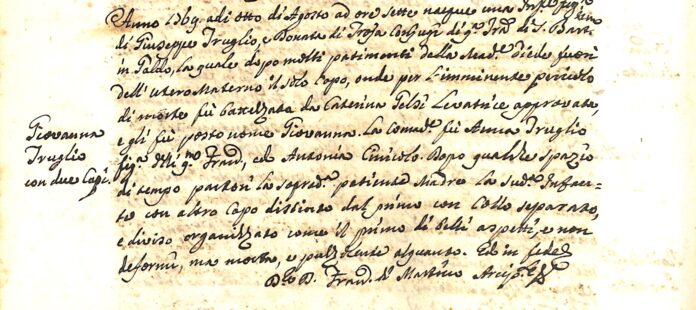 Anno 1769 adi otto di Agosto ad ore sette nacque una Infte figlª
di Giuseppe Truglio, e Donata di Trofa Conjugi di qª Frañ di S. Bart:
in Galdo, la quale dopo molti patimenti della Madᵉ diede fuori
dell'utero Materno il solo Capo, onde per l'imminente pericolo
di morte fù battezzata da Caterina Levatrice approvata,
e gli fù posto nome Giovanna. La Comadᵉ fù Anna Truglio
figª del qm Franᶜ, ed Antonia Cinicolo. Dopo qualche spazio
di tempo partorì la sopradª paziente Madre la sudª Infan-
te con altro Capo distinto dal primo con Collo separato,
e diviso, organizzato come il primo di belli aspetti, e non
deformi, ma morta, e puzzolente alquanto. Ed in fede
D. Franᶜ de Martino Arcipᵉ
Giovanna
Truglio
con due Capi.